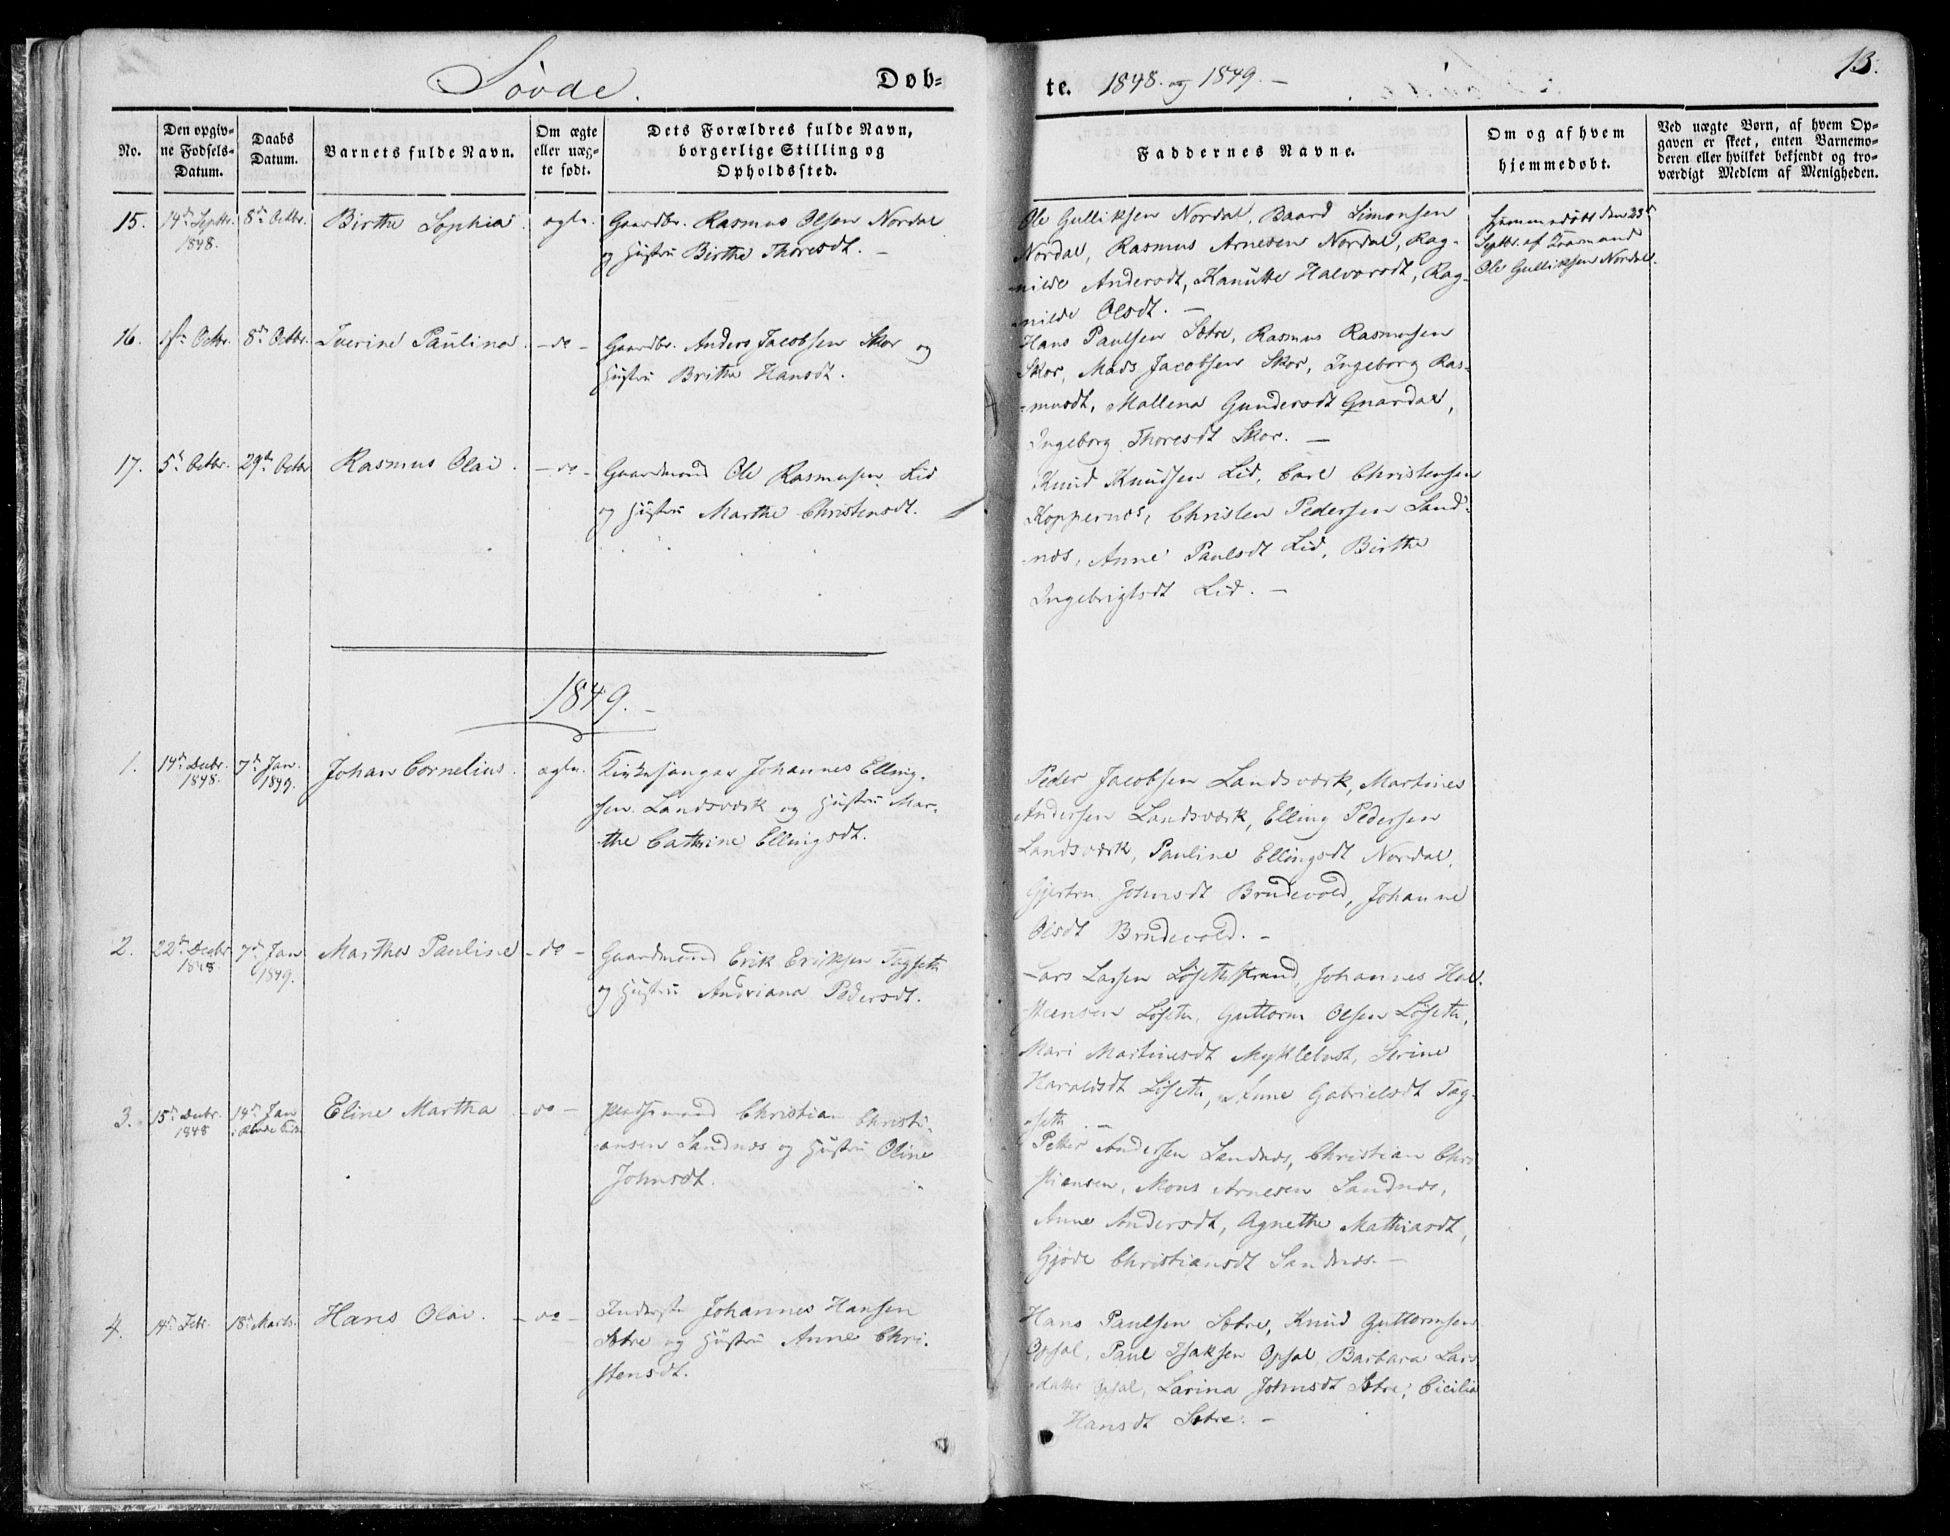 Søvde.
Døb-
te. 1848. og 1849. —
13.
No.
Den opgiv-
ne Fødsels-
Datum.
Daabs
Datum.
Barnets fulde Navn.
Om ægte
eller uæg-
te født.
Dets Forældres fulde Navn,
borgerlige Stilling og
Opholdssted.
Faddernes Navne.
Om og af hvem
hjemmedøbt.
Ved uægte Børn, af hvem Op-
gaven er skeet, enten Barnemo-
deren eller hvilket bekjendt og tro-
værdigt Medlem af Menigheden.
15.
14de Septbr.
1848.
8de Octbr.
Birthe Sophia
ægte.
Gaardbr. Rasmus Olsen Nordal
og Hustru Birthe Thoresdt. —
Ole Gulliksen Nordal, Baard Simonsen
Nordal, Rasmus Arnesen Nordal, Rag-
nilde Andersdt, Kanutte Halvorsdt, Rag-
nilde Olsdt. —
Hjemmedøbt den 23de
Septbr. af
Ole Gulliksen Nordal.
16.
1ste Octbr.
8de Octbr.
Iverine Paulina.
— do —
Gaardbr. Anders Jacobsen Skor og
Hustru Brithe Hansdt.
Hans Paulsen Sætre, Rasmus Rasmusen
Skor, Mads Jacobsen Skor, Ingeborg Ras-
musdt, Mallena Gundersdt Gnardal,
Ingeborg Thoresdt Skor. —
17.
5te Octbr.
29de Octbr.
Rasmus Olai.
— do —
Gaardmand Ole Rasmusen Lid
og Hustru Marthe Christensdt.
Knud Knudsen Lid, Carl Christensen
Koppernæs, Christen Pedersen Sand-
næs, Anne Paulsdt Lid, Birthe
Ingebrigtsdt Lid. —
1849. —
1.
14de Decbr.
1848.
7de Jan.
1849.
Johan Cornelius.
ægte.
Kirkesanger Johannes Elling-
sen Landsværk og Hustru Mar-
the Cathrine Ellingsdt.
Peder Jacobsen Landsværk, Martines
Andersen Landsværk, Elling Pedersen
Landsværk, Pauline Ellingsdt Nordal,
Gjertru Johnsdt Brudevold, Johanne
Olsdt Brudevold. —
2.
22de Decbr.
1848.
7de Jan.
1849.
Marthe Pauline
— do —
Gaardmand Erik Eriksen Tagseth
og Hustru Andriana Pedersdt.
Lars Larsen Løsethstrand, Johannes Hal-
steensen Løseth, Guttorm Olsen Løseth,
Mari Martinesdt Myklebust, Serine
Haraldsdt Løseth, Anne Gabrielsdt Tag-
seth. —
3.
15de Decbr.
1848
14de Jan
Eline Martha
— do —
Pladsmand Christian Christi-
ansen Sandnæs og Hustru Oline
Johnsdt.
Petter Andersen Sandnæs, Christian Chri-
stiansen, Mons Arnesen Sandnæs,
Anne Andersdt, Agnethe Mathiasdt,
Gjøde Christiansdt Sandnæs. —
4.
14de Febr.
18de Marts.
Hans Olai.
— do —
Inderste Johannes Hansen
Sætre og Hustru Anne Chri-
stensdt.
Hans Paulsen Sætre, Knud Guttormsen
Opsal, Paul Isaksen Opsal, Barbara Lars-
datter Opsal, Larina Johnsdt Sætre, Cicilia
Hansdt Sætre. —